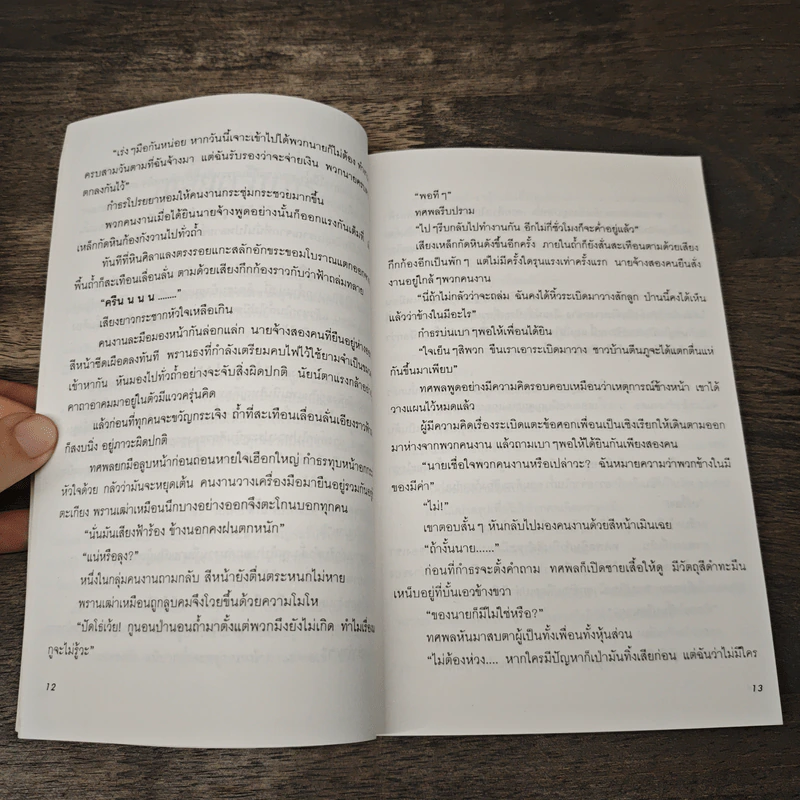 “เร่งๆมือกันหน่อย หากวันนี้เจาะเข้าไปได้พวกนายก็ไม่ต้อง
ครบสามวันตามที่ฉันจ้างมา แต่ฉันรับรองว่าจะจ่ายเงิน พวกนายครบ
ตกลงกันไว้”
กำธรโปรยยาหอมให้คนงานกระชุ่มกระชวยมากขึ้น
พวกคนงานเมื่อได้ยินนายจ้างพูดอย่างนั้นก็ออกแรงกันเต็มที่
เหล็กกัดหินก้องกังวานไปทั่วถ้ำ
ทันทีที่หินศิลาแลงตรงรอยแกะสลักอักขระขอมโบราณแตกออก
พื้นถ้ำก็สะเทือนเลื่อนลั่น ตามด้วยเสียงกึกก้องราวกับว่าฟ้าถล่มทลาย
“ครืน น น น ........”
เสียงยาวกระชากหัวใจเหลือเกิน
คนงานละมือมองหน้ากันล่อกแล่ก นายจ้างสองคนที่ยืนอยู่ห่าง
สีหน้าซีดเผือดลงทันที พรานธงที่กำลังเตรียมคบไฟไว้ใช้ยามจำเป็น
เข้าหากัน หันมองไปทั่วถ้ำอย่างจะจับสิ่งผิดปกติ นัยน์ตาแรงกล้า
คาถาอาคมมาอยู่ในตัวมีแววครุ่นคิด
แล้วก่อนที่ทุกคนจะขวัญกระเจิง ถ้ำที่สะเทือนเลื่อนลั่นเอียงราว
ก็สงบนิ่ง อยู่ภาวะผิดปกติ
ทศพลยกมือลูบหน้าก่อนถอนหายใจเฮือกใหญ่ กำธรทุบหน้าอก
หัวใจด้วย กลัวว่ามันจะหยุดเต้น คนงานวางเครื่องมือมายืนอยู่รวมกัน
ตะเกียง พรานเฒ่าเหมือนนึกบางอย่างออกจึงตะโกนบอกทุกคน
“นั่นมันเสียงฟ้าร้อง ข้างนอกคงฝนตกหนัก”
“แน่หรือลุง?”
หนึ่งในกลุ่มคนงานถามกลับ สีหน้ายังตื่นตระหนกไม่หาย
พรานเฒ่าเหมือนถูกลูบคมจึงโวยขึ้นด้วยความโมโห
“ปัดโธ่เว้ย! กูนอนป่านอนถ้ำมาตั้งแต่พวกมึงยังไม่เกิด ทำไมเรื่อง
กูจะไม่รู้วะ”
12
“พอทีๆ”
ทศพลรีบปราม
“ไปๆรีบกลับไปทำงานกัน อีกไม่กี่ชั่วโมงก็จะค่ำอยู่แล้ว”
เสียงเหล็กกัดหินดังขึ้นอีกครั้ง ภายในถ้ำก็ยังสั่นสะเทือนตามด้วยเสียง
กึกก้องอีกเป็นพักๆ แต่ไม่มีครั้งใดรุนแรงเท่าครั้งแรก นายจ้างสองคนยืนสั่ง
งานอยู่ใกล้ๆพวกคนงาน
“นี่ถ้าไม่กลัวว่าจะถล่ม ฉันคงได้หิ้วระเบิดมาวางสักลูก ป่านนี้คงได้เห็น
แล้วว่าข้างในมีอะไร”
กำธรบ่นเบาๆพอให้เพื่อนได้ยิน
“ใจเย็นๆสิพวก ขืนเราเอาระเบิดมาวาง ชาวบ้านตีนภูจะได้แตกตื่นแห่
กันขึ้นมาเพียบ”
ทศพลพูดอย่างมีความคิดรอบคอบเหมือนว่าเหตุการณ์ข้างหน้า เขาได้
วางแผนไว้หมดแล้ว
ผู้มีความคิดเรื่องระเบิดแตะข้อศอกเพื่อนเป็นเชิงเรียกให้เดินตามออก
มาห่างจากพวกคนงาน แล้วถามเบาๆพอให้ได้ยินกันเพียงสองคน
“นายเชื่อใจพวกคนงานหรือเปล่าวะ? ฉันหมายความว่าหากข้างในมี
ของมีค่า”
“ไม่!”
เขาตอบสั้นๆ หันกลับไปมองคนงานด้วยสีหน้าเมินเฉย
“ถ้างั้นนาย......”
ก่อนที่กำธรจะตั้งคำถาม ทศพลก็เปิดชายเสื้อให้ดู มีวัตถุสีดำทะมึน
เหน็บอยู่ที่บั้นเอวข้างขวา
“ของนายก็มีไม่ใช่หรือ?”
ทศพลหันมาสบตาผู้เป็นทั้งเพื่อนทั้งหุ้นส่วน
“ไม่ต้องห่วง.... หากใครมีปัญหาก็เป่ามันทิ้งเสียก่อน แต่ฉันว่าไม่มีใคร
13